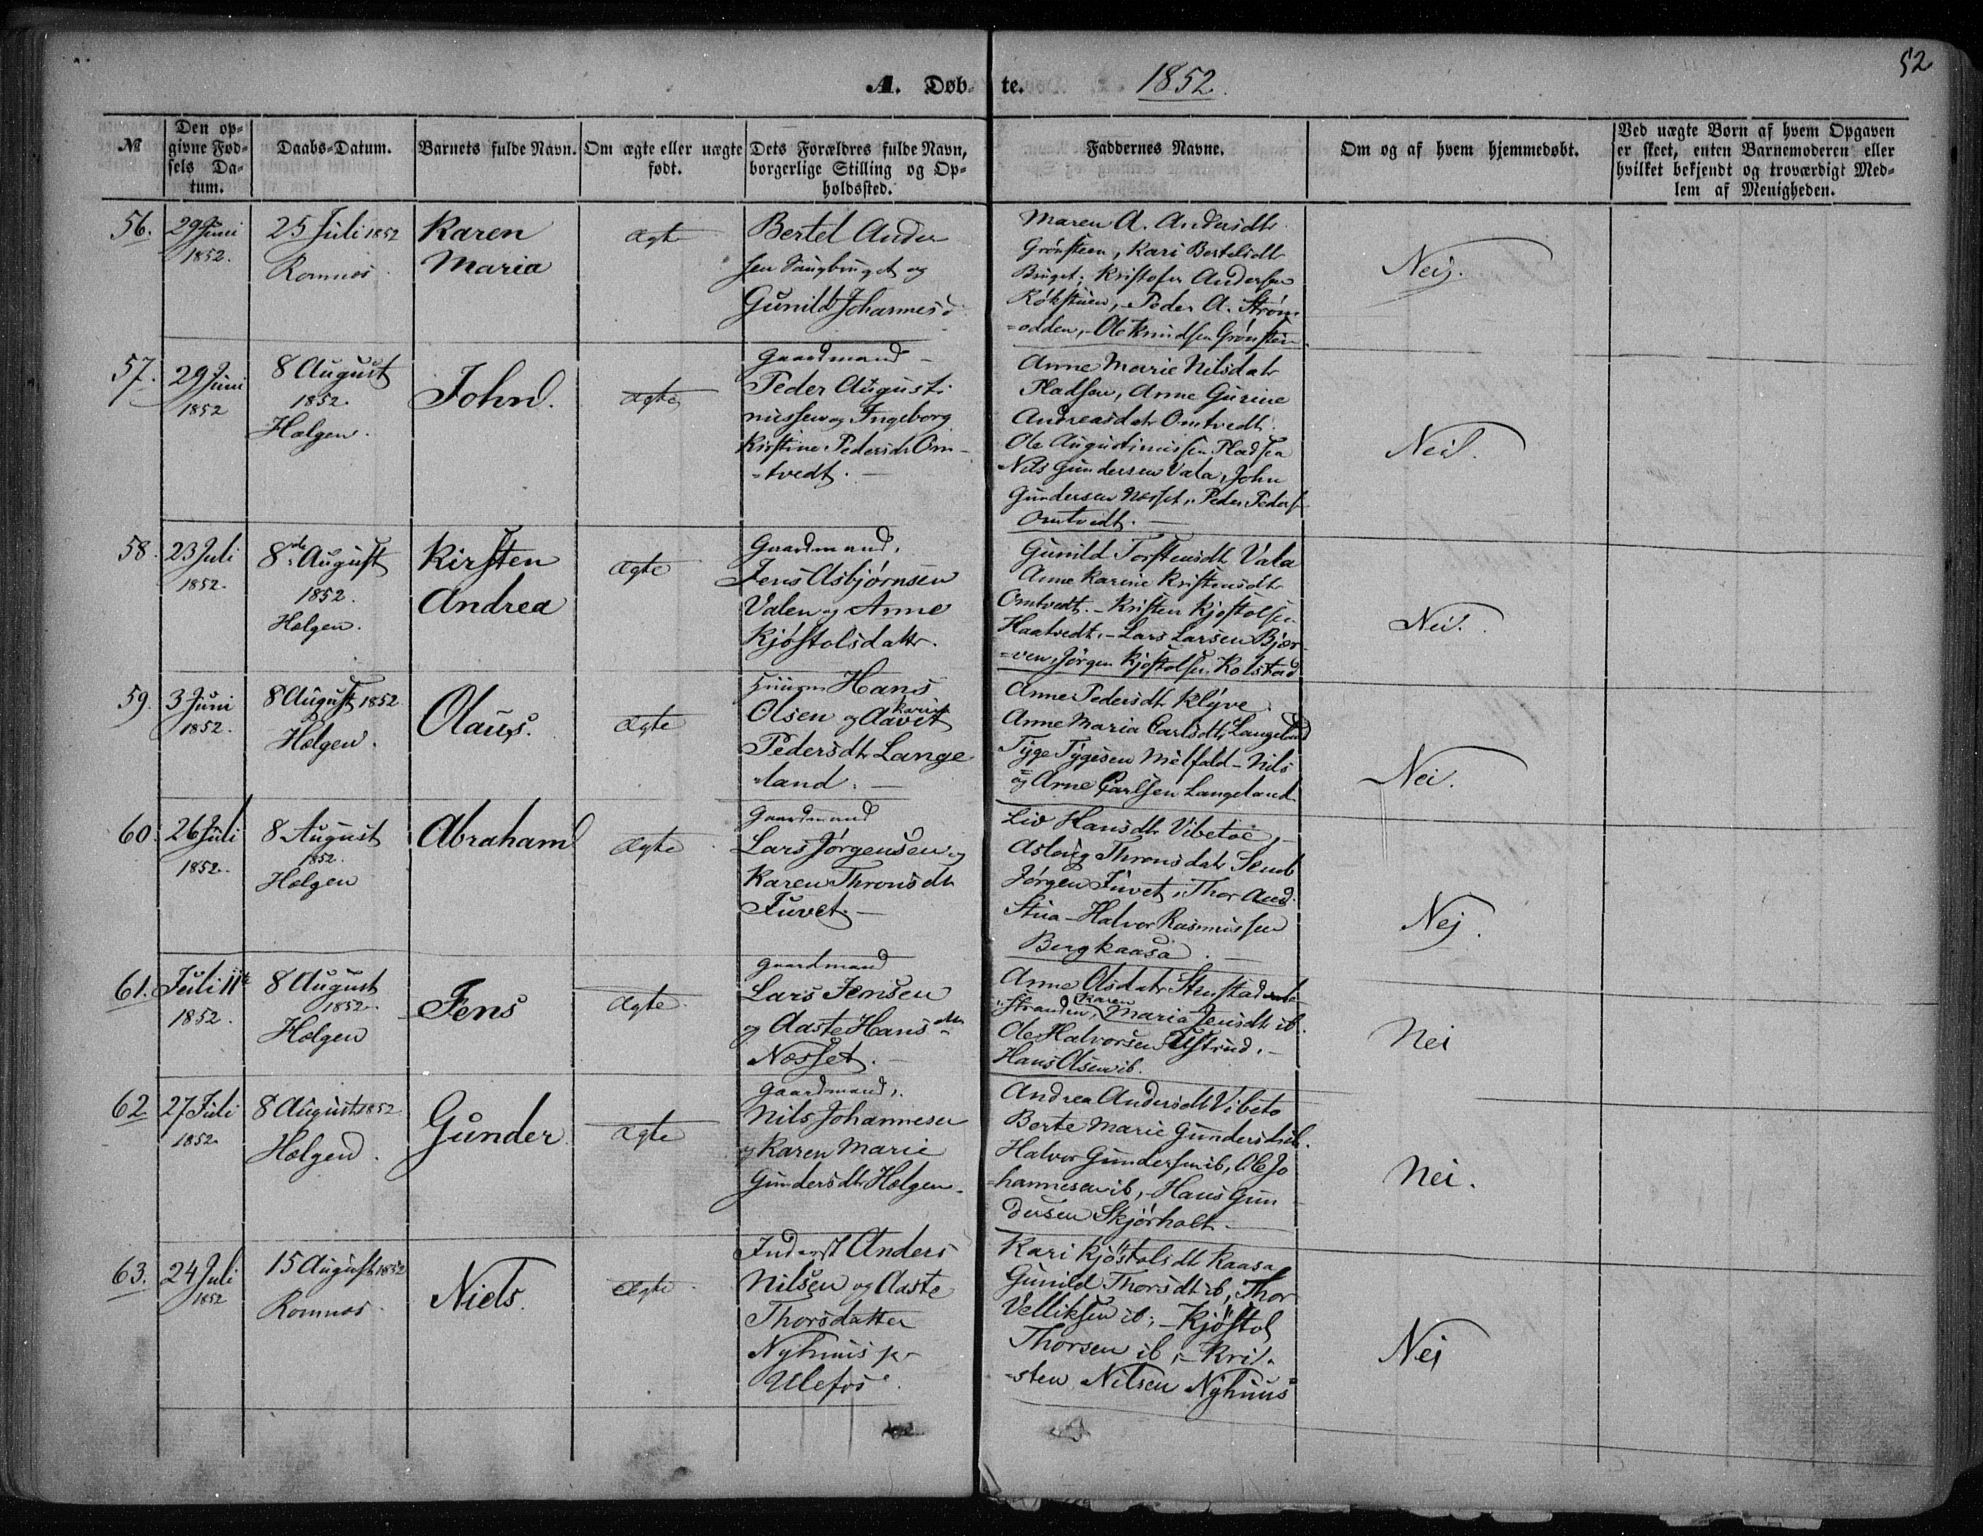 52
A. Døb-te. 1852.
№
Den op-
givne Fød-
sels Da-
tum.
Daabs-Datum.
Barnets fulde Navn.
Om ægte eller uægte
født.
Dets Forældres fulde Navn,
borgerlige Stilling og Op-
holdssted.
Faddernes Navne.
Om og af hvem hjemmedøbt.
Ved uægte Børn af hvem Opgaven
er skeet, enten Barnemoderen eller
hvilket bekjendt og troværdigt Med-
lem af Menigheden.
56.
29 Juni
1852.
25 Juli 1852
Romnes.
Karen
Maria
ægte
Bertel Ander
sen Saugbruget og
Gunild Johannesd.
Maren A. Andersdtr
Grønsteen, Kari Bertelsdtr
Bruget, Kristofer Andersen
Røkstuen, Peder A. Strøm
=odden, Ole Knudsen Grønsteen
Nej.
57.
29 Juni
1852
8 August
1852.
Holgen.
John.
ægte
Gaardmand
Peder Augusti
nussen og Ingeborg
Kirstine Pedersdtr Om-
=tvedt.
Anne Marie Nilsdatr
Pladsen, Anne Gurine
Andreasdatr Omtvedt.
Ole Augustinussen Pladsen
Nils Gundersen Vala, John
Gundersen Nesset, Peder Peders
Omtvedt.
Nei.
58.
23 Juli
1852.
8de August
1852.
Holgen.
Kirsten
Andrea
ægte
Gaardmand,
Jens Asbjørnsen
Valen og Anne
Kjøstolsdattr.
Gunild Torstensdtr Vala
Anne Karine Kristensdtr
Omtvedt. - Kristen Kjøstolsen
Haatvedt, - Lars Larsen Bjør-
=ven, Jørgen Kjøstolsen Kolstad
Nei.
59.
3 Juni
1852.
8 August 1852
Holgen.
Olaus.
ægte
Hans
Olsen og Kari
Pedersdtr Lange
=land.
Anne Pedersdtr Klyve
Anne Maria Carlsdtr Langeland
Tyge Tygesen Melfald - Nils
og Arne Carlsen Langeland
Nei.
60.
26 Juli
1852.
8 August
1852.
Holgen
Abraham
ægte
Gaardmand
Lars Jørgensen og
Karen Thronsdtr
Tuvet.
Liv Hansdtr Vibetoe,
Aslaug Thronsdatr
Jørgen Tuvet, Thor
Stua - Halvor Rasmussen
Bergkaasa.
Nej.
61.
Juli 11te
1852.
8 August
1852.
Holgen
Jens
ægte
gaardmand
Lars Jensen
og Aaste Hansdtr
Næsset.
Anne Olsdatr
Stranden, Karen Maria Jensdtr ib.
Ole Halvorsen
Hans Olsen ib.
Nei
62
27 Juli
1852
8 August 1852
Holgen.
Gunder
ægte
gaardmand,
Nils Johannesen
og Karen Marie
Gundersdtr Holgen.
Andrea Andersdtr Vibeto
Berte Marie Gundersdtr ib.
Halvor Gundersen ib, Ole Jo
=hannesen ib, - Hans Gun
dersen Skjørholt.
Nei.
63.
24 Juli
1852
15 August 1852
Romnes.
Niels.
ægte
Inderst Anders
Nilsen og Aaste
Thorsdatter
Nyhuus p.
Ulefos.
Kari Kjøstolsdtr Kaasa
Gunild Thorsdtr ib, Thor
Velliksen ib, - Kjøstol
Thorsen ib, - Kri-
-sten Nilsen Nyhuus
Nei